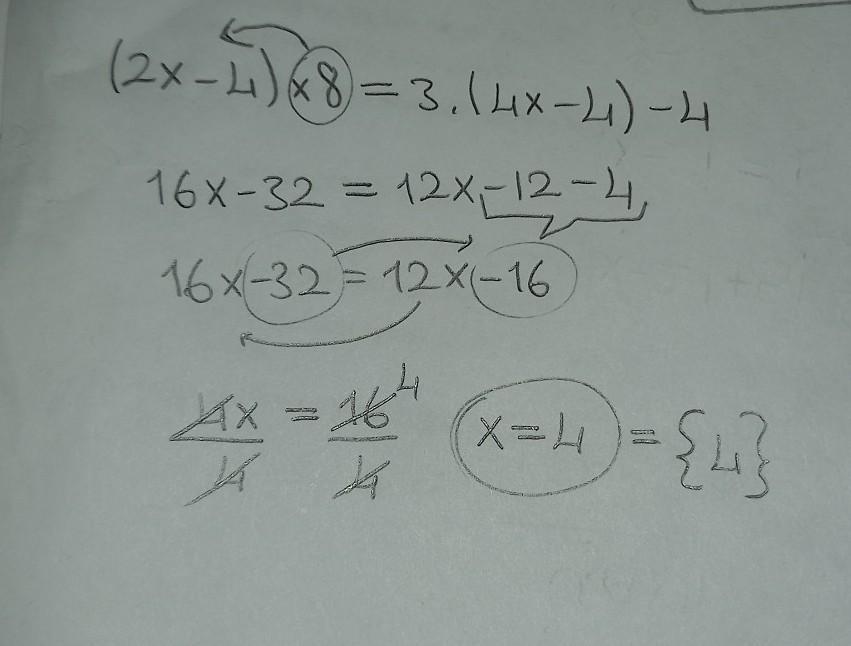 (2x-4)×8=3.(4x-4)-4
16x-32=12x-12-4
16x-32=12x-16
4x/4=16/4 4 x=4={4}